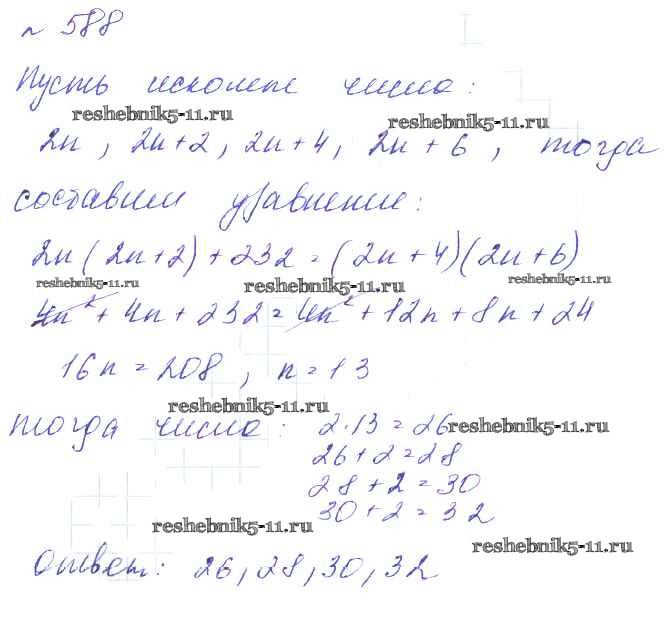 № 588
Пусть искомые числа:
reshebnik5-11.ru
reshebnik5-11.ru
2n, 2n+2, 2n+4, 2n+6, тогда
составим уравнение:
2n(2n+2)+232=(2n+4)(2n+6)
reshebnik5-11.ru
reshebnik5-11.ru
reshebnik5-11.ru
4n²+4n+232=4n²+12n+8n+24
16n=208, n=13
reshebnik5-11.ru
тогда числа: 2·13=26
reshebnik5-11.ru
26+2=28
28+2=30
30+2=32
reshebnik5-11.ru
reshebnik5-11.ru
ответ: 26, 28, 30, 32